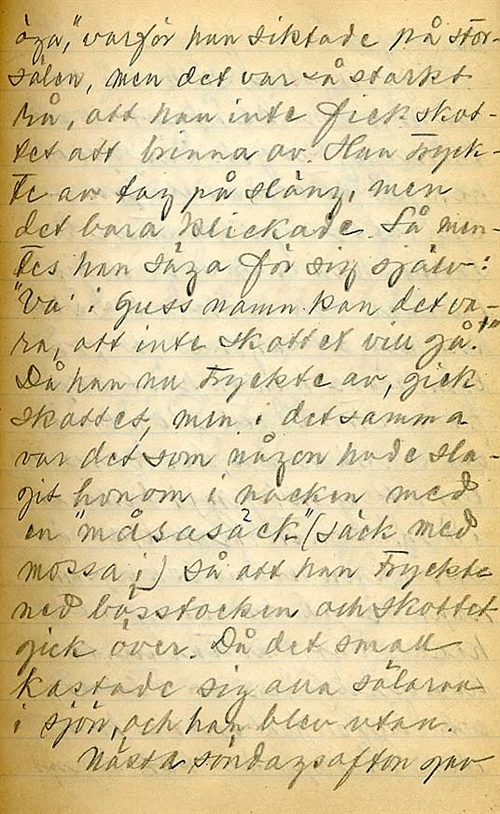 öga," varför han siktade på stor-
sälen, men det var så starkt
rå, att han inte fick skot-
tet att brinna av. Han tryck-
te av tag på släng, men
det bara klickade. Så min-
tes han säga för sig själv:
"Va' i Guss namn kan det va-
ra, att inte skottet vill gå!"
Då han nu tryckte av, gick
skottet, men i detsamma
var det som någon hade sla-
git honom i nacken med
en "måsasäck" (säck med
mossa i) så att han tryckte
ned bösstocken och skottet
gick över. Då det small
kastade sig alla sälarna
i sjön, och han blev utan.
Nästa söndagsafton gav